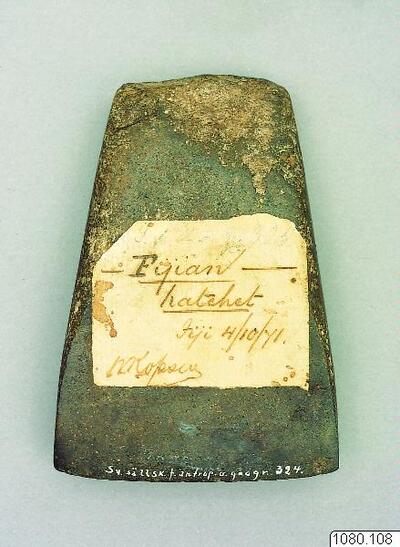 — Fijian —
hatchet
Fiji 4/10/71.
Sv. sällsk. f. antrop. o. geogr. 324.
1080.108